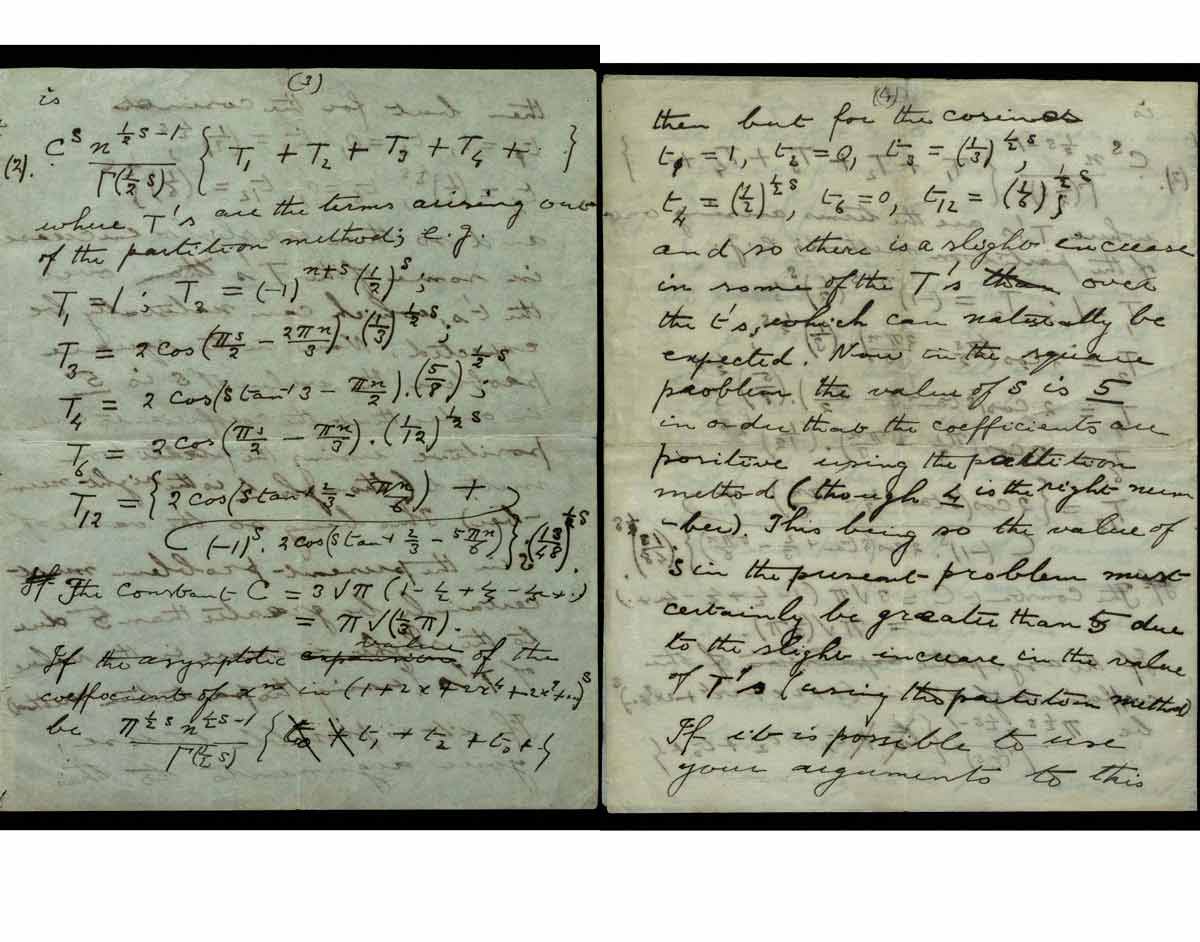 (3)
is
(2). C^s n^{½s-1} / Γ(½s) { T₁ + T₂ + T₃ + T₄ + ·· }
where T's are the terms arising out
of the partition method; e.g.
T₁ = 1; T₂ = (-1)^{n+s} (1/2)^s;
T₃ = 2 cos(πs/2 - 2πn/3).(1/3)^{½s};
T₄ = 2 cos(s tan⁻¹ 3 - πn/2).(5/8)^{½s};
T₆ = 2 cos(πs/2 - πn/3).(1/12)^{½s}
T₁₂ = {2 cos(s tan⁻¹ 2/3 - πn/6) +
(-1)^s. 2 cos(s tan⁻¹ 2/3 - 5πn/6)}.(13/48)^{½s}.
The constant C = 3√π (1 - ½ + ¼ - ⅕ + ··)
= π√(⅓π).
If the asymptotic expansion value of the
coefficient of xⁿ in (1+2x+2x⁴+2x⁹+··)^s
be π^{½s} n^{½s-1} / Γ(½s) { t₀ + t₁ + t₂ + t₃ + ·}
(4)
then but for the cosines
t₁ = 1, t₂ = 0, t₃ = (1/3)^{½s},
t₄ = (1/2)^{½s}, t₆ = 0, t₁₂ = (1/6)^{½s};
and so there is a slight increase
in some of the T's than over
the t's, which can naturally be
expected. Now in the square
problem the value of s is 5
in order that the coefficients are
positive using the partition
method (though 4 is the right num
-ber). This being so the value of
s in the present problem must
certainly be greater than 5 due
to the slight increase in the value
of T's (using the partition method)
If it is possible to use
your arguments to this